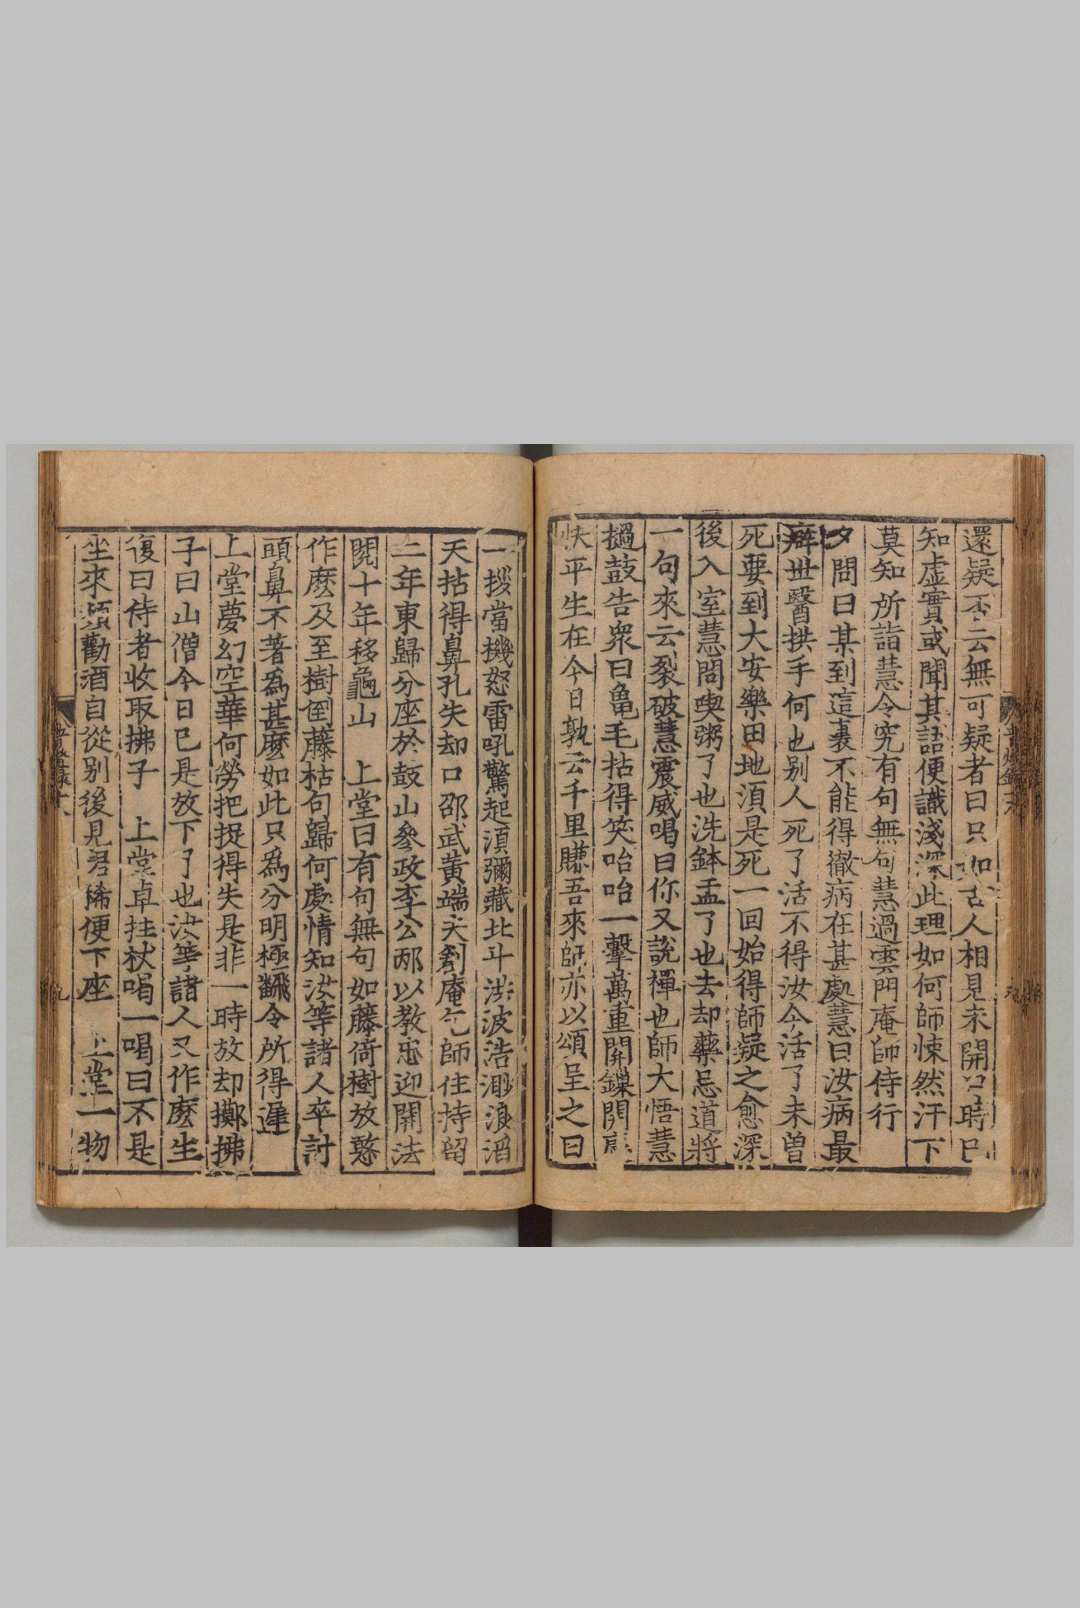 還疑否云無可疑者曰只如古人相見未開口時已
知虛實或聞其語便識淺深此理如何師悚然汗下
莫知所詣慧令究有句無句慧過雲門庵師侍行
夕問曰某到這裏不能得徹病在甚處慧曰汝病最
癖世醫拱手何也別人死了活不得汝今活了未曽
死要到大安樂田地須是死一回始得師疑之愈深
後入室慧問喫粥了也洗鉢盂了也去却藥忌道將
一句來云裂破慧震威喝曰你又說禪也師大悟慧
撾鼓告衆曰龜毛拈得笑咍咍一擊萬重關鏁開慶
快平生在今日孰云千里賺吾來師亦以頌呈之曰
一拶當機怒雷吼驚起須彌藏北斗洪波浩渺浪滔
天拈得鼻孔失却口邵武黃端夫創庵乞師住持留
三年東歸分座於鼓山參政李公邴以教忠迎開法
閱十年移龜山 上堂曰有句無句如藤倚樹放憨
作麽及至樹倒藤枯句歸何處情知汝等諸人卒討
頭鼻不著爲甚麽如此只爲分明極翻令所得遲
上堂夢幻空華何勞把捉得失是非一時放却擲拂
子曰山僧今日已是放下了也汝等諸人又作麽生
復曰侍者收取拂子 上堂卓拄杖喝一喝曰不是
坐來頻勸酒自從別後見君稀便下座 上堂一物